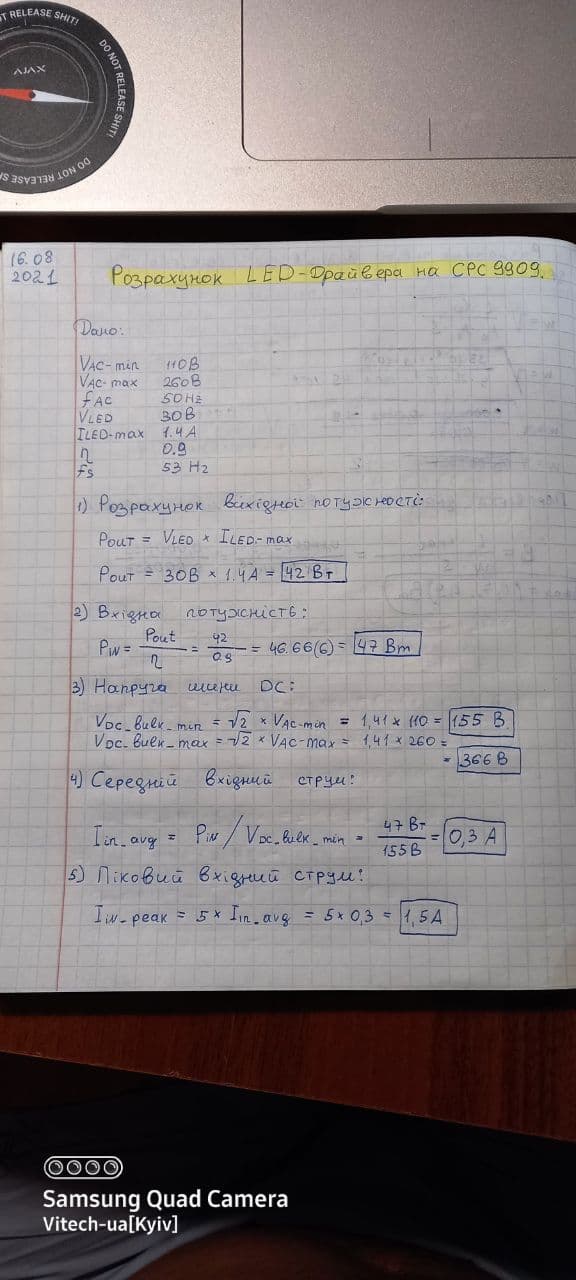 T RELEASE SHIT!
DO NOT RELEASE SHIT!
AJAX
DO NOT RELEASE S
16.08
2021
Розрахунок LED-Драйвера на CPC 9909.
Дано:
VAC-min 110В
VAC-max 260В
fAC 50Hz
VLED 30В
ILED-max 1.4А
η 0.9
fs 53 Hz
1) Розрахунок вихідної потужності:
POUT = VLED × ILED-max
POUT = 30В × 1.4А = 42 Вт
2) Вхідна потужність:
PIN = Pout / η = 42 / 0.9 = 46.66(6) = 47 Вт
3) Напруга шини DC:
VDC_bulk_min = √2 × VAC-min = 1,41 × 110 = 155 В.
VDC_bulk_max = √2 × VAC-max = 1,41 × 260 =
= 366 В
4) Середній вхідний струм:
Iin_avg = PIN / VDC_bulk_min = 47 Вт / 155В = 0,3 А
5) Піковий вхідний струм:
IIN_peak = 5 × Iin_avg = 5 × 0,3 = 1,5А
Samsung Quad Camera
Vitech-ua[Kyiv]